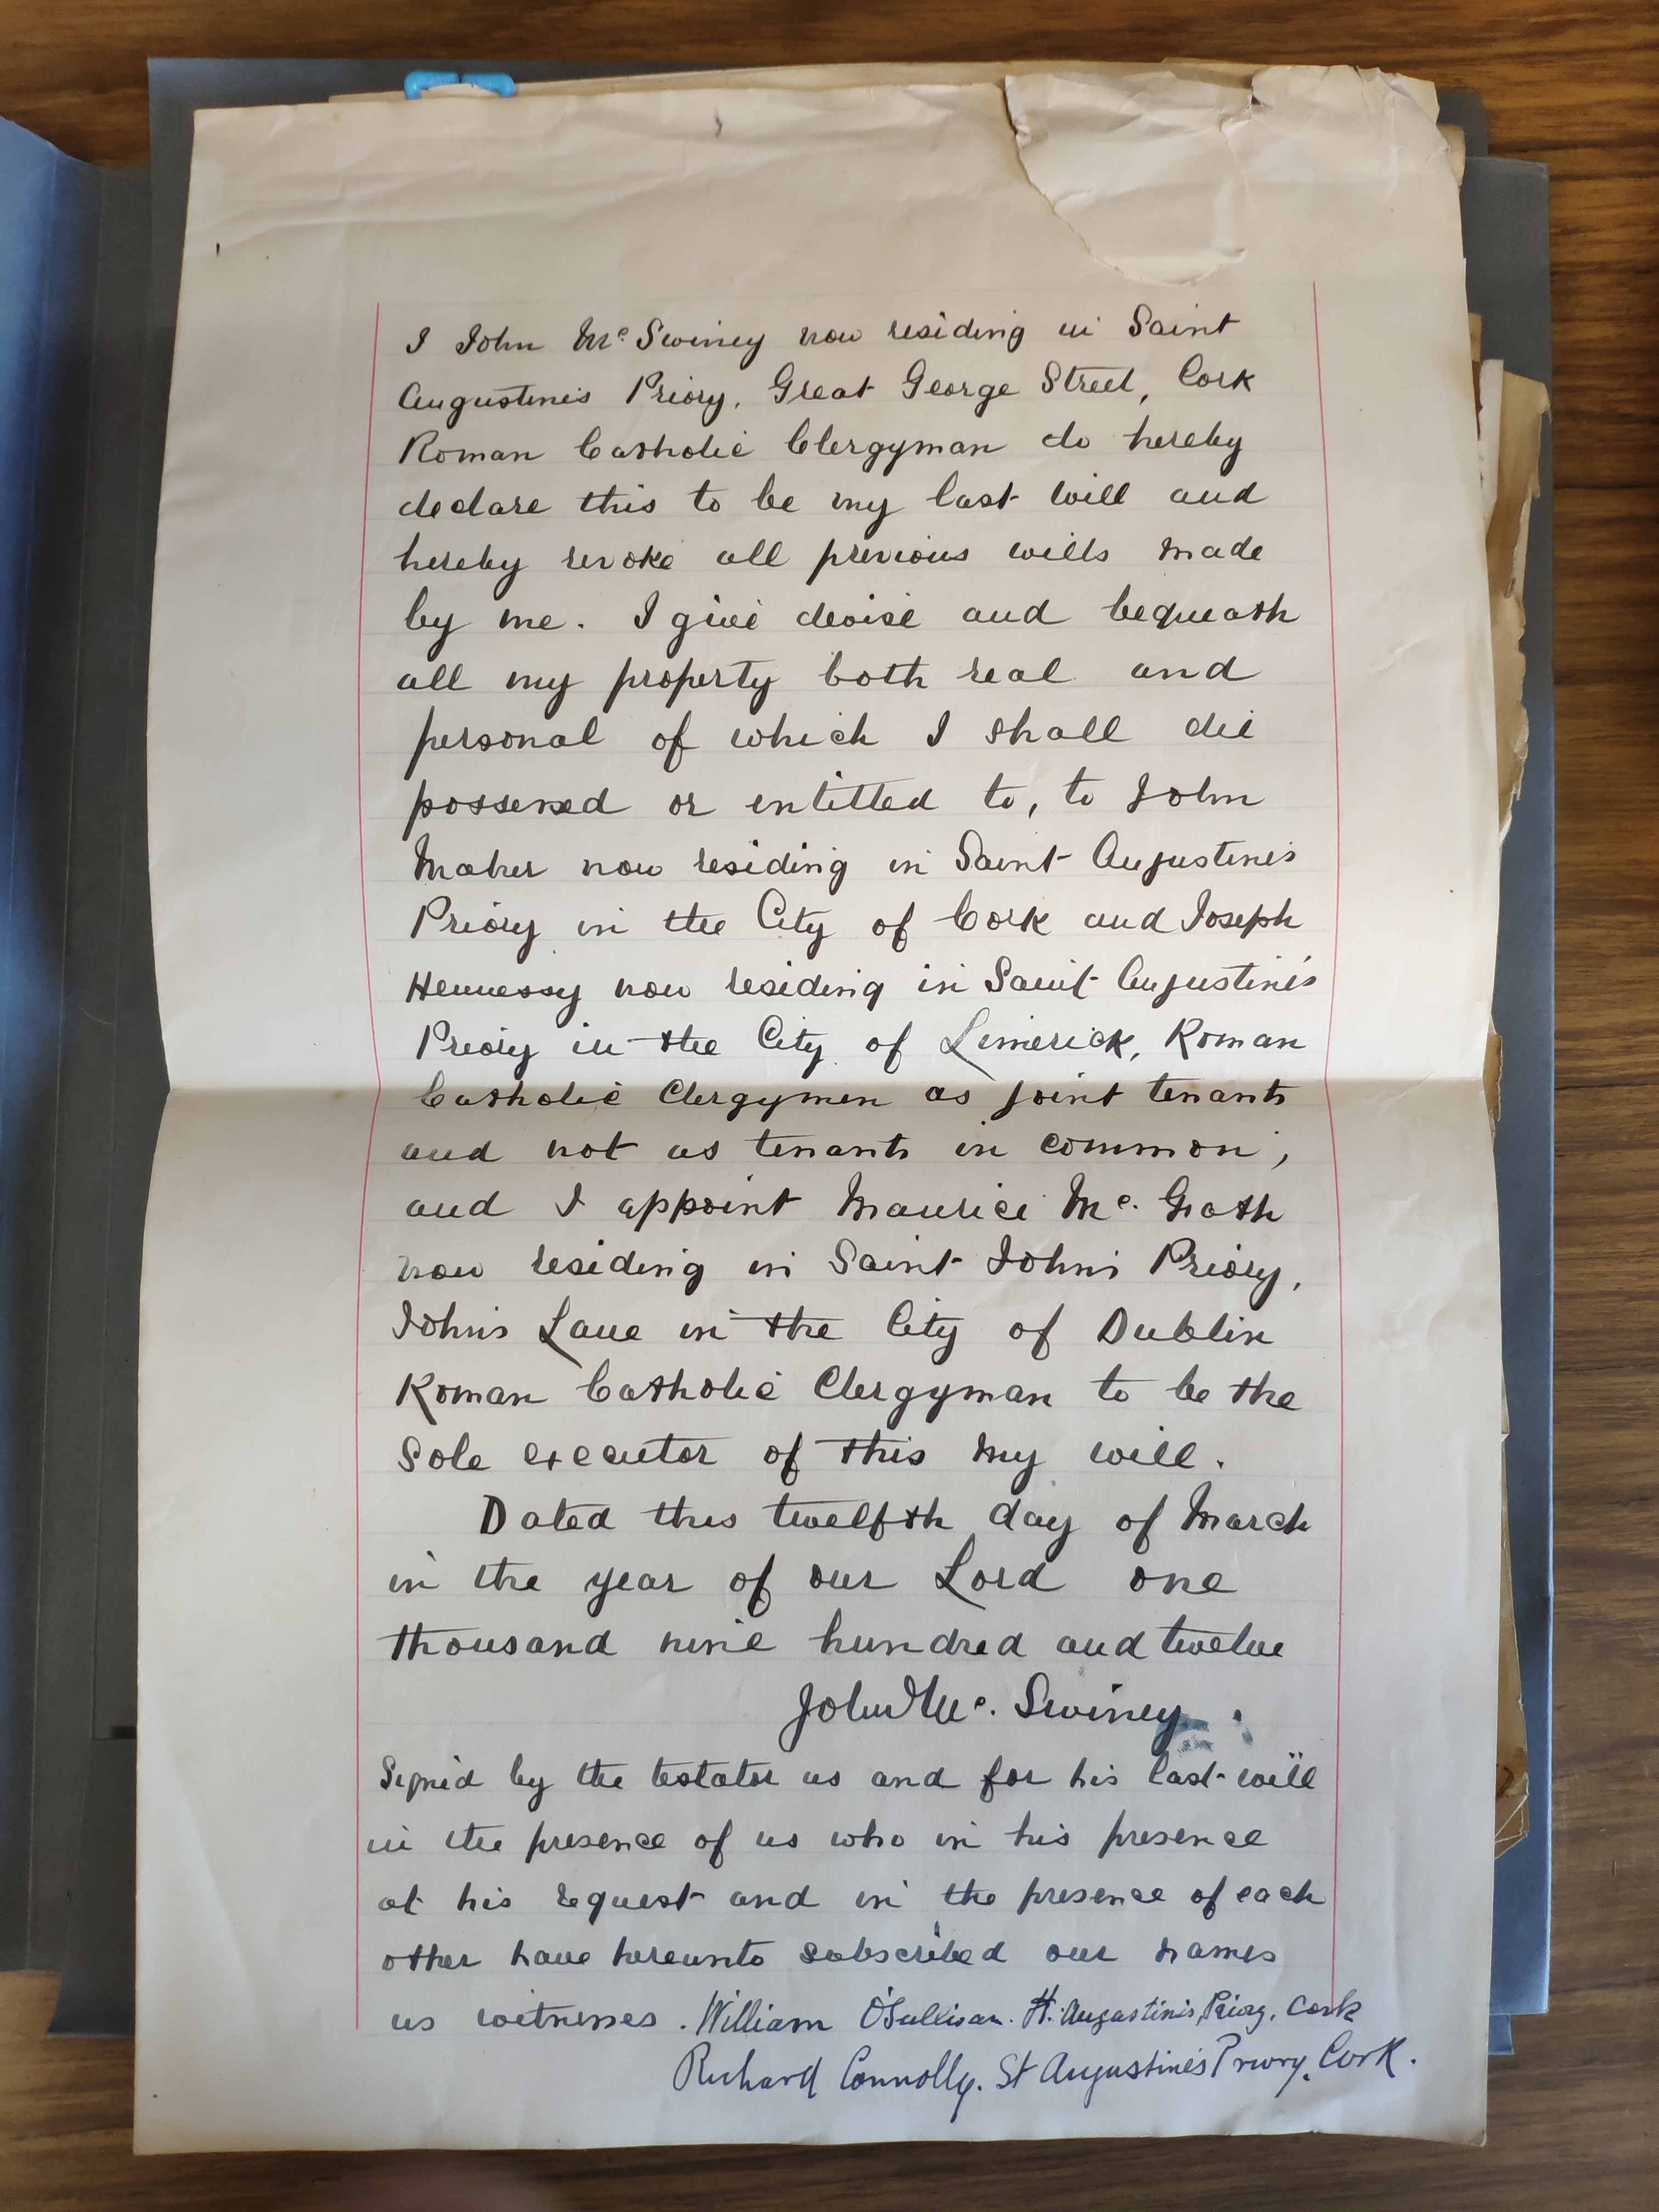 I John Mc Swiney now residing in Saint
Augustine's Priory, Great George Street, Cork
Roman Catholic Clergyman do hereby
declare this to be my last will and
hereby revoke all previous wills made
by me. I give devise and bequeath
all my property both real and
personal of which I shall die
possessed or entitled to, to John
Maher now residing in Saint Augustine's
Priory in the City of Cork and Joseph
Hennessy now residing in Saint Augustine's
Priory in the City of Limerick, Roman
Catholic Clergymen as joint tenants
and not as tenants in common,
and I appoint Maurice Mc. Grath
now residing in Saint John's Priory,
John's Lane in the City of Dublin
Roman Catholic Clergyman to be the
Sole executor of this my will.
Dated this twelfth day of March
in the year of our Lord one
thousand nine hundred and twelve
John Mc. Swiney.
Signed by the testator as and for his last will
in the presence of us who in his presence
at his request and in the presence of each
other have hereunto subscribed our names
as witnesses. William O'Sullivan. St. Augustine's Priory. Cork
Richard Connolly. St Augustine's Priory. Cork.